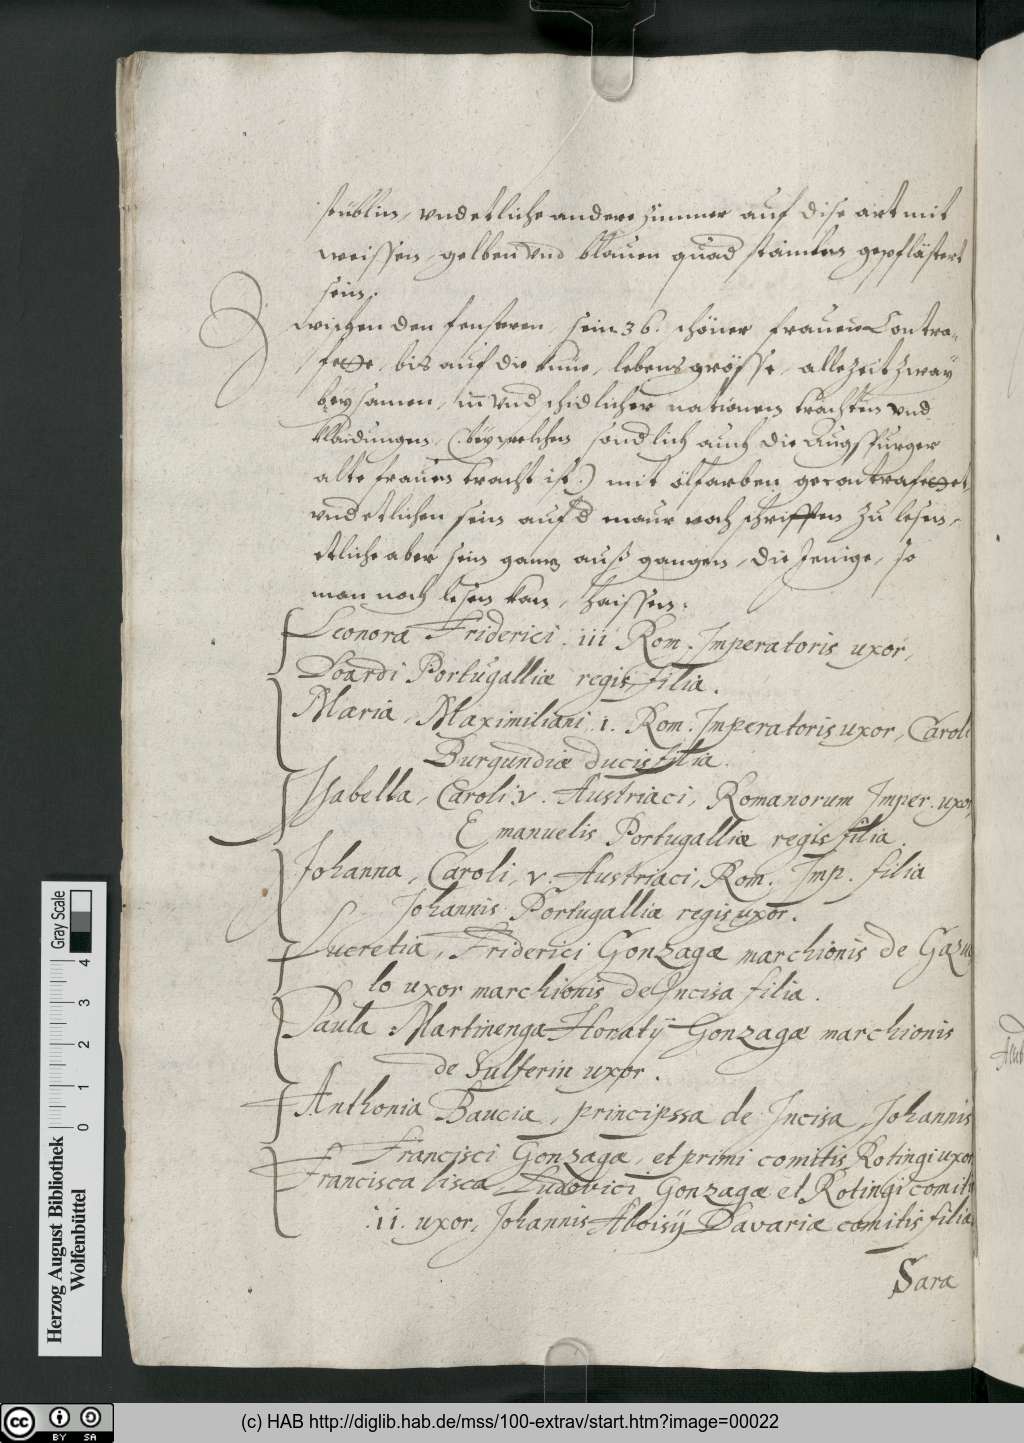 stüblin, vnd etliche andere zimmer auf dise art mit
weissen, gelben vnd blauen quad stainlen gepflästert
sein.
Zwischen den fensteren, sein 36. schöner frauen Contra-
fecte, bis auf die knüe, lebensgrösse, allezeit zway
beysamen, in vnd schidlicher nationen trachten vnd
klaidungen, (beÿ welchen sondlich auch die Augspurger
alte frauen tracht ist.) mit ölfarben gecontrafectet,
vnd etlichen sein auf d maur noch schrifften zu lesen,
etliche aber sein gantz auß gangen, die Jenige, so
man noch lesen kan, haissen:
Leonora Friderici .iii. Rom. Imperatoris uxor,
Doardi Portugalliæ regis filia.
Maria, Maximiliani .i. Rom. Imperatoris uxor, Caroli
Burgundiæ ducis filia.
Isabella, Caroli .v. Austriaci, Romanorum Imper. uxor,
Emanuelis Portugalliæ regis filia.
Johanna, Caroli .v. Austriaci, Rom. Imp. filia
Johannis Portugalliæ regis uxor.
Lucretia, Friderici Gonzagæ marchionis de Gazu
lo uxor marchionis de Incisa filia.
Paula Martinenga Horatij Gonzagæ marchionis
de Sulferin uxor.
Anthonia Baucia, principssa de Incisa, Johannis
Francisci Gonzagæ, et primi comitis Rotingi uxor
Francisca lisca Ludovici Gonzagæ et Rotingi comitis
.ii. uxor, Johannis Aloisij Davariæ comitis filia
Sara
Gray Scale
0 1 2 3 4
Herzog August Bibliothek
Wolfenbüttel
cc BY SA
(c) HAB http://diglib.hab.de/mss/100-extrav/start.htm?image=00022